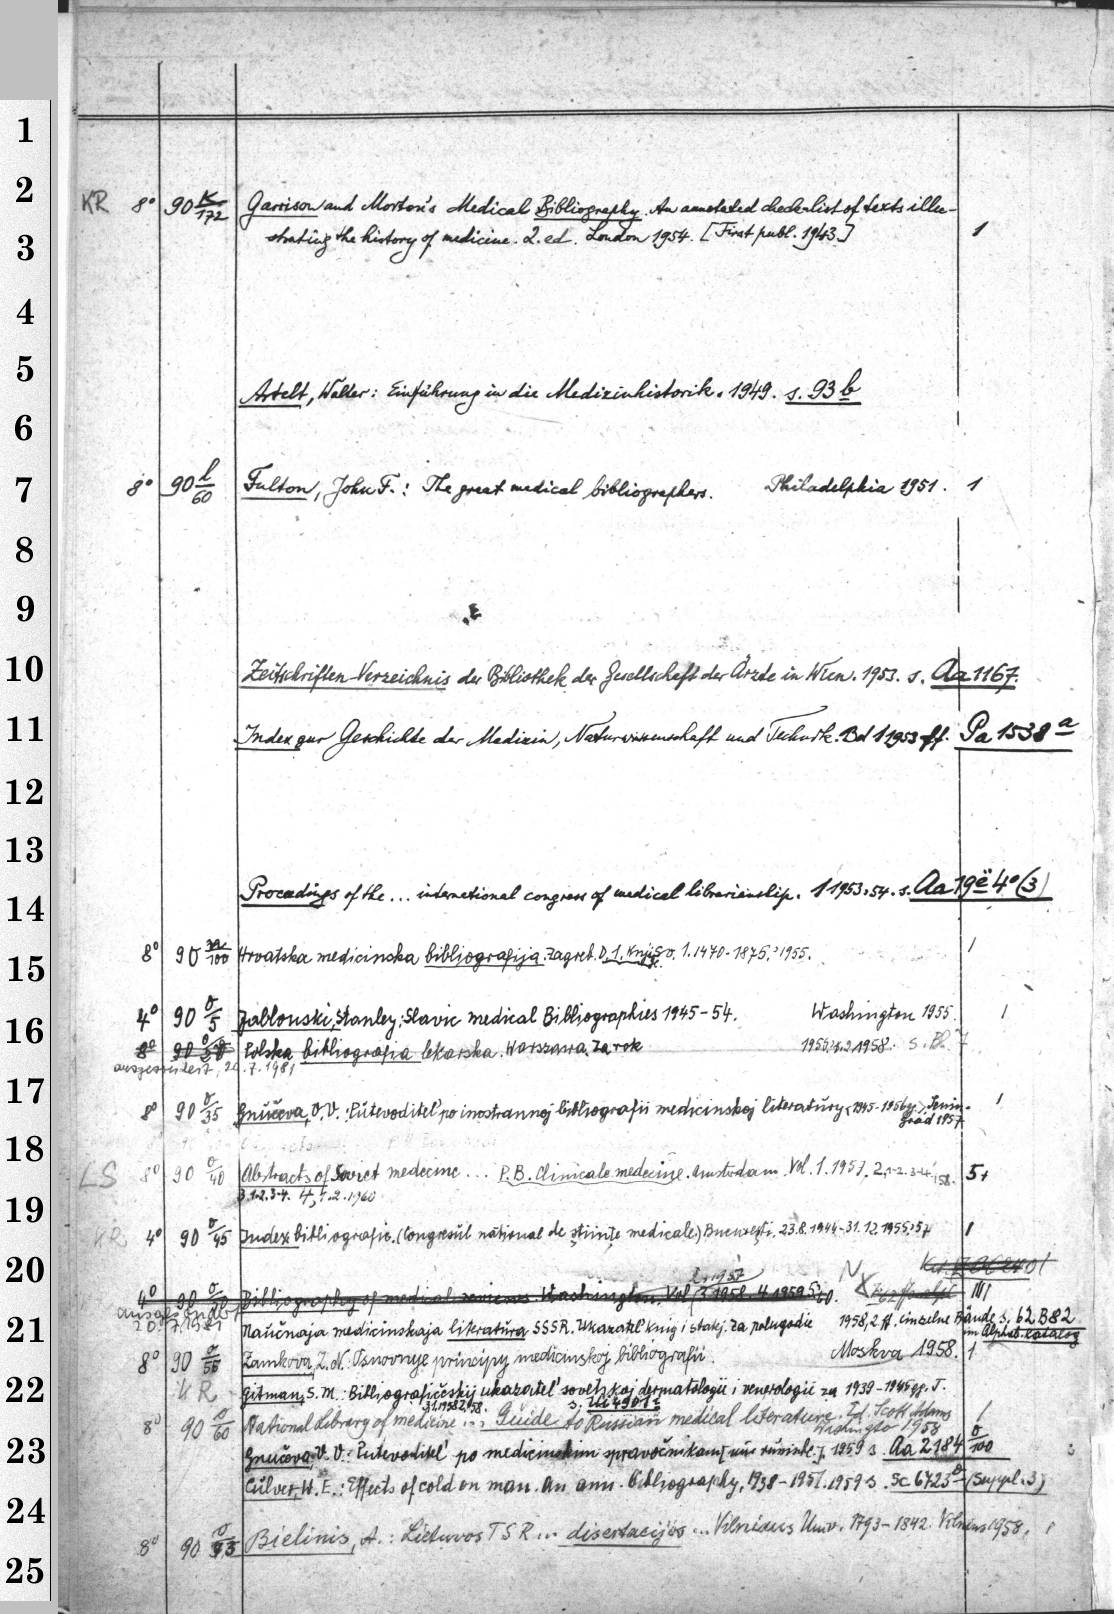 1
2
KR 8° 90 K/172 Garrison and Morton's Medical Bibliography. An annotated check-list of texts illu-
3
strating the history of medicine. 2. ed. London 1954. [First publ. 1943.] 1
4
5
Artelt, Walter: Einführung in die Medizinhistorik. 1949. s. 93 b
6
7
8° 90 l/60 Fulton, John F.: The great medical bibliographers. Philadelphia 1951. 1
8
9
10
Zeitschriften-Verzeichnis der Bibliothek der Gesellschaft der Ärzte in Wien. 1953. s. Aa 1167.
11
Index zur Geschichte der Medizin, Naturwissenschaft und Technik. Bd 1 1953 ff. Pa 1538 a
12
13
14
Proceedings of the ... international congress of medical librarianship. 1 1953.54. s. Aa 19ë 4° (3)
15
8° 90 /100 Hrvatska medicinska bibliografija. Zagreb. D. 1. 1. 1470-1875. 1955. 1
16
4° 90 o/5 Jablonski, Stanley: Slavic medical Bibliographies 1945-54. Washington 1955. 1
8° 90 Polska bibliografia lekarska. Warszawa. Za rok 1958.
17
8° 90 o/35 Gnučeva, V. V.: Putevoditel' po inostrannoj bibliografii medicinskoj literatury Lenin-
grad 1957. 1
18
LS 8° 90 o/40 Abstracts of Soviet medecine ... P.B. Clinicale medecine. Amsterdam. Vol. 1. 1957. 5+
19
KR 4° 90 o/45 Index bibliografic. (Congresul national de științe medicale.) București. 23.8.1944-31.12.1955. 1
20
4° 90 Bibliography of medical reviews. Washington. Vol
21
Naučnaja medicinskaja literatura SSSR. Ukazatel' knig i statej. Za polugodie 1958, 2 ff. einzelne Bände s. 62 B 82
im Alphab. Katalog
8° 90 o/55 Zamkova, Z. N.: Osnovnye principy medicinskoj bibliografii. Moskva 1958. 1
22
KR Gitman, S. M.: Bibliografičeskij ukazatel' sovetskoj dermatologii i venerologii za 1939-1945 gg.
8° 90 o/60 National Library of medicine ... Guide to Russian medical literature. Ed. Scott Adams
1958
23
Gnučeva, V. V.: Putevoditel' po medicinskim spravočnikam 1959 s. Aa 2184 o/100
Culver, W. E.: Effects of cold on man. An ann. bibliography, 1938-1951. 1959 s. Sc 6723 (Suppl. 3)
24
8° 90 Bielinis, A.: Lietuvos TSR ... disertacijos ... Vilniaus Univ. 1793-1842. Vilnius 1958. 1
25